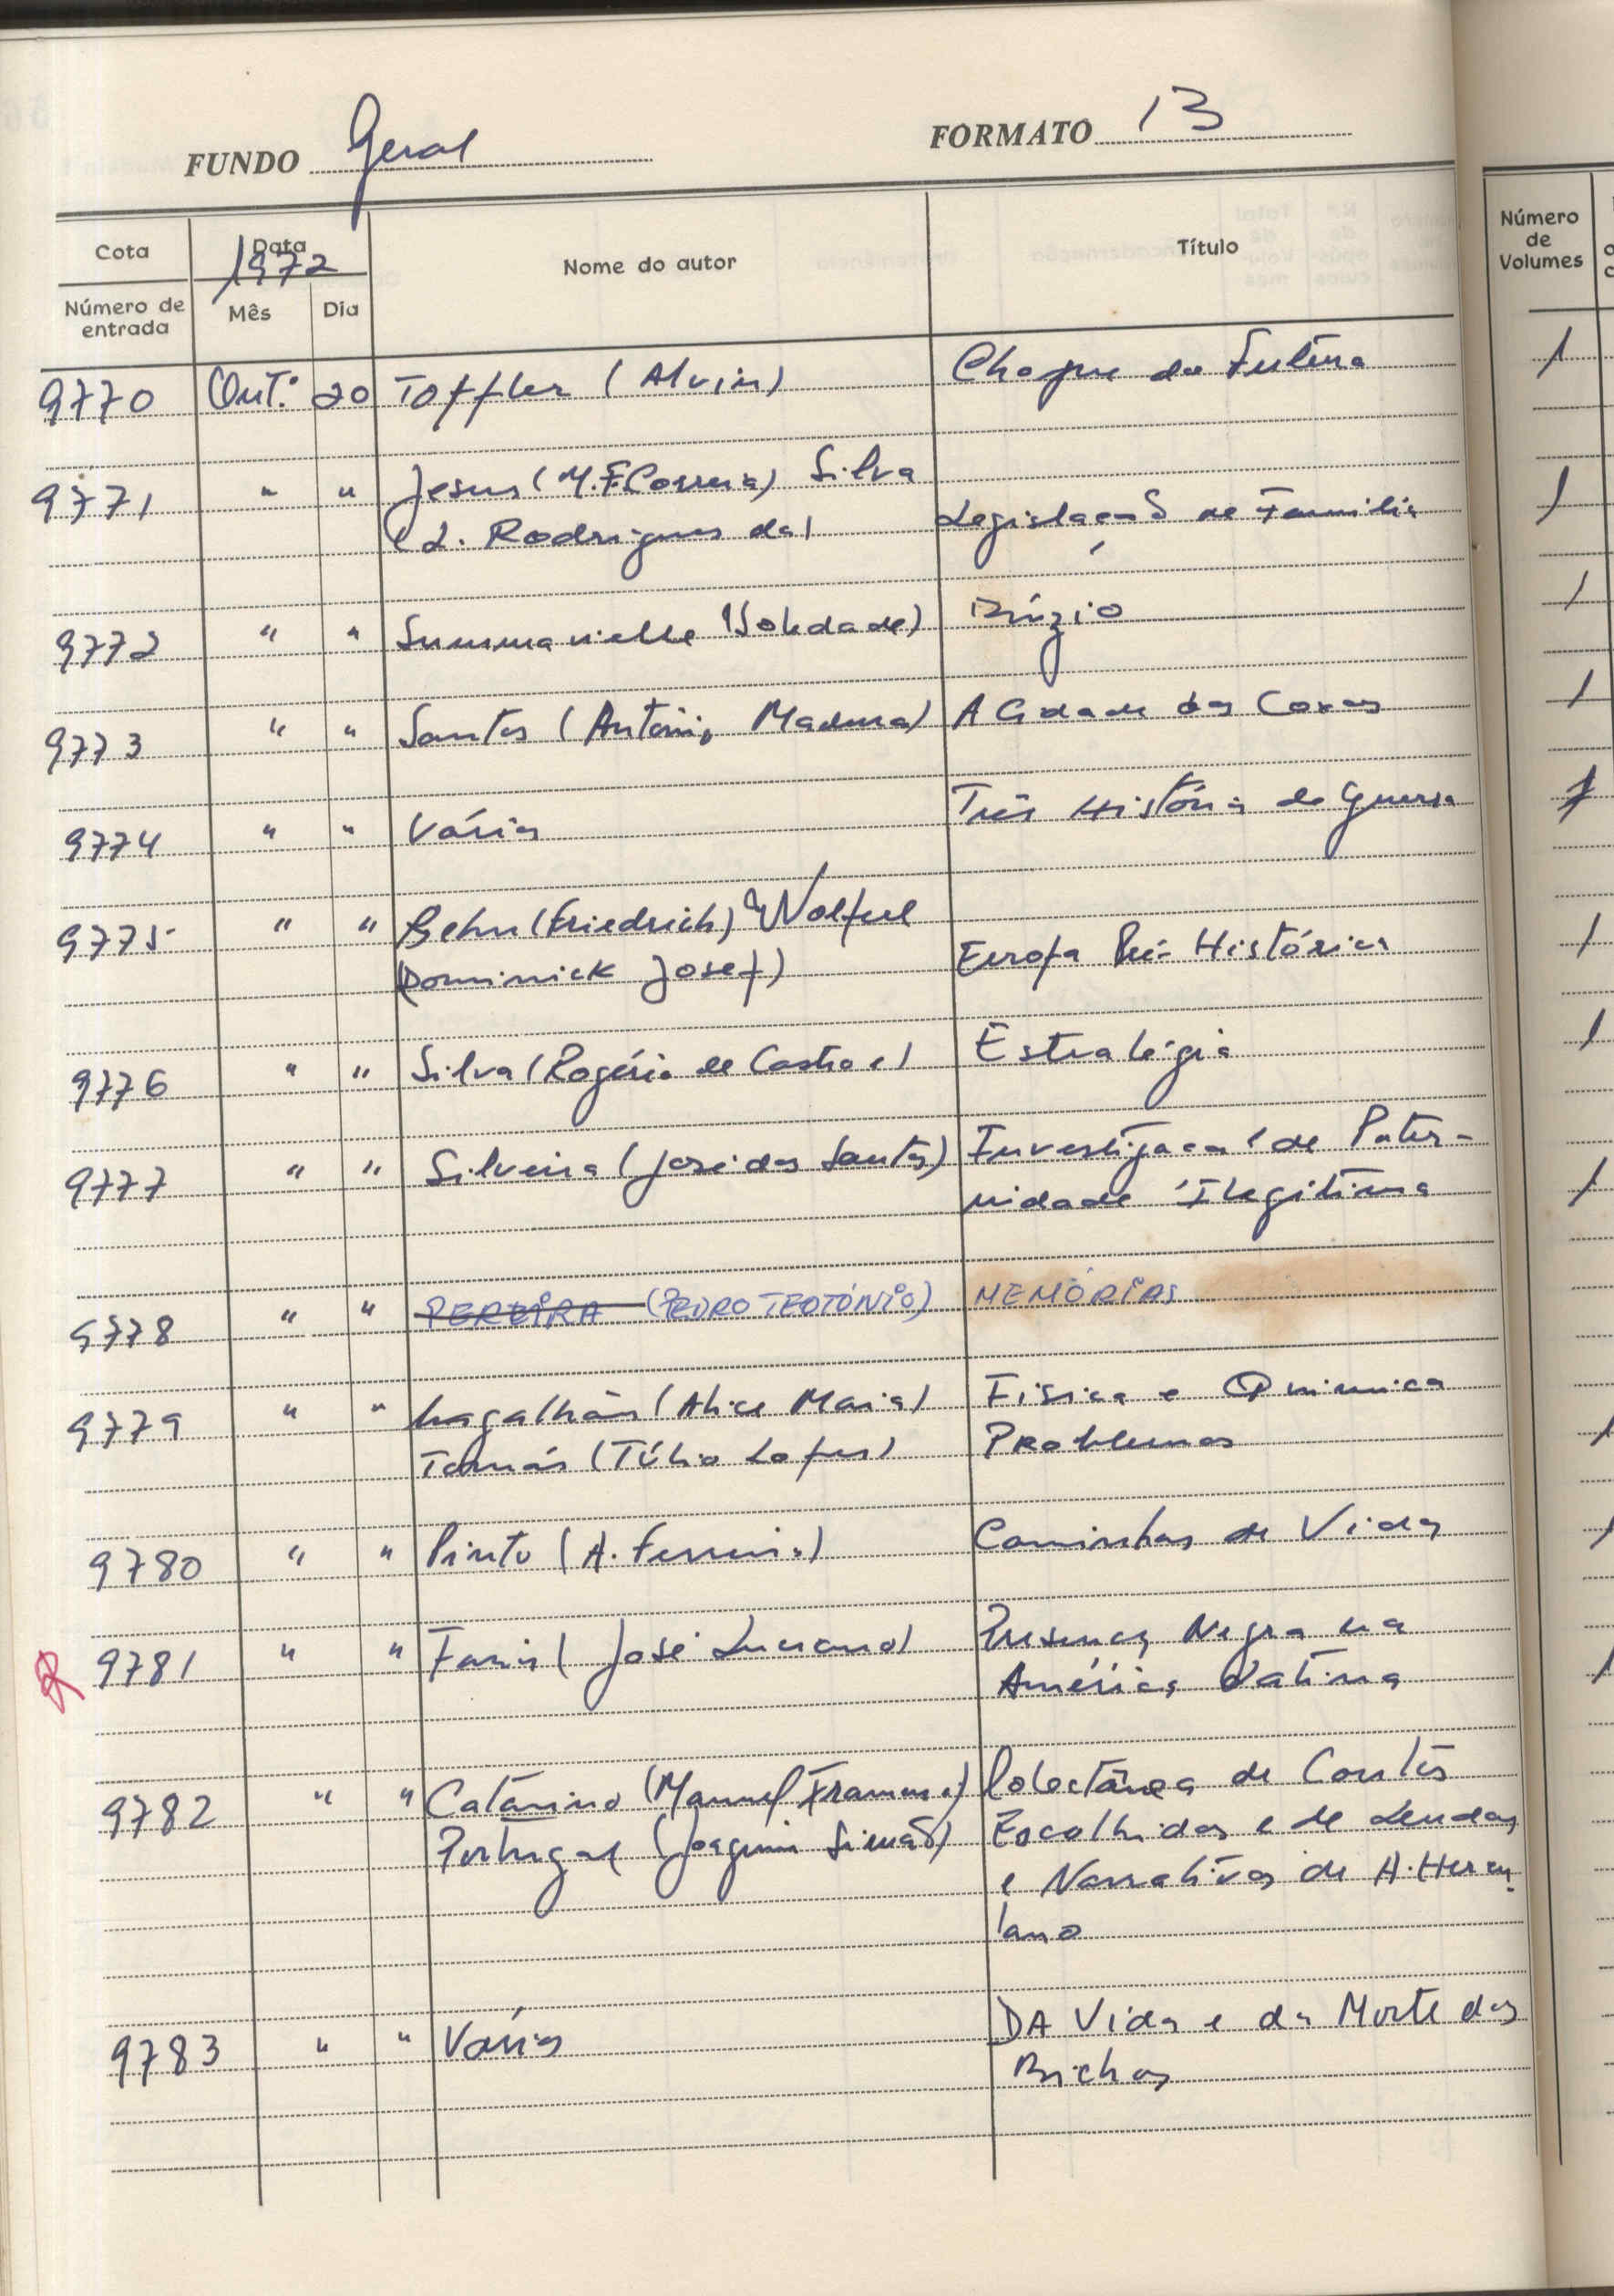 FUNDO Geral FORMATO 13
Cota Data 1972 Nome do autor Título Número de Volumes
Número de entrada Mês Dia
9770 Out.º 20 Toffler (Alvin) Choque do Futuro 1
9771 " " Jesus (M.F. Correia) Silva
(L. Rodrigues da) Legislação de Familia 1
9772 " " Summavielle (Soledade) Búzio 1
9773 " " Santos (António Madeira) A Cidade das Coxas 1
9774 " " Vários Três História de Guerra 1
9775 " " Behn (Friedrich) Wolfel
(Dominick Josef) Europa Pré-Histórica 1
9776 " " Silva (Rogério de Castro e) Estratégia 1
9777 " " Silveira (José dos Santos) Investigação de Pater-
nidade Ilegitima 1
9778 " " PEREIRA (PEDRO TEOTÓNIO) MEMÓRIAS
9779 " " Magalhães (Alice Maia) Fisica e Quimica
Tomás (Túlio Lopes) Problemas 1
9780 " " Pinto (A. Ferreira) Caminhos de Vida 1
R 9781 " " Faria (José Luciano) Presença Negra na
América Latina 1
9782 " " " Catarino (Manuel Francisco) Colectânea de Contos
Portugal (Joaquim Simão) Escolhidos e de Lendas
e Narrativas de A. Hercu-
lano
9783 " " Vários DA Vida e da Morte dos
Bichos